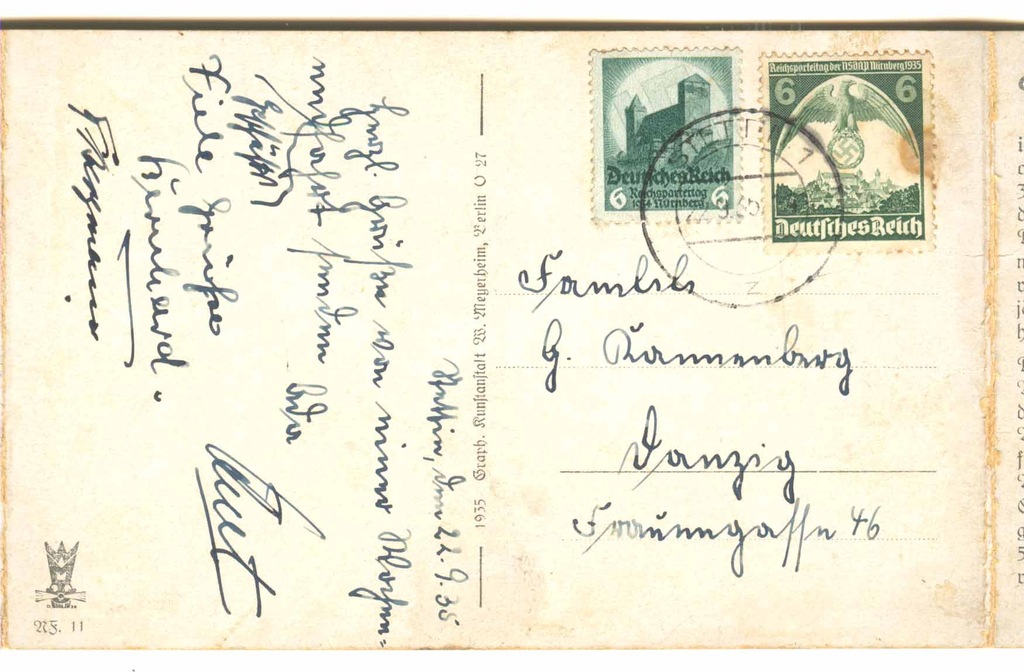 Stettin, den 22.9.35
Herzl. Grüße von einer Wochen-
endfahrt senden
Viele Grüße
Bernhard.
1935 Graph. Kunstanstalt W. Meyerheim, Berlin O 27
Nf. 11
Deutsches Reich
Reichsparteitag
1934 Nürnberg
6 6
Reichsparteitag der NSDAP Nürnberg 1935
6 6
Deutsches Reich
STETTIN 1
22.9.35
z
Familie
G. Kannenberg
Danzig
Frauengasse 46